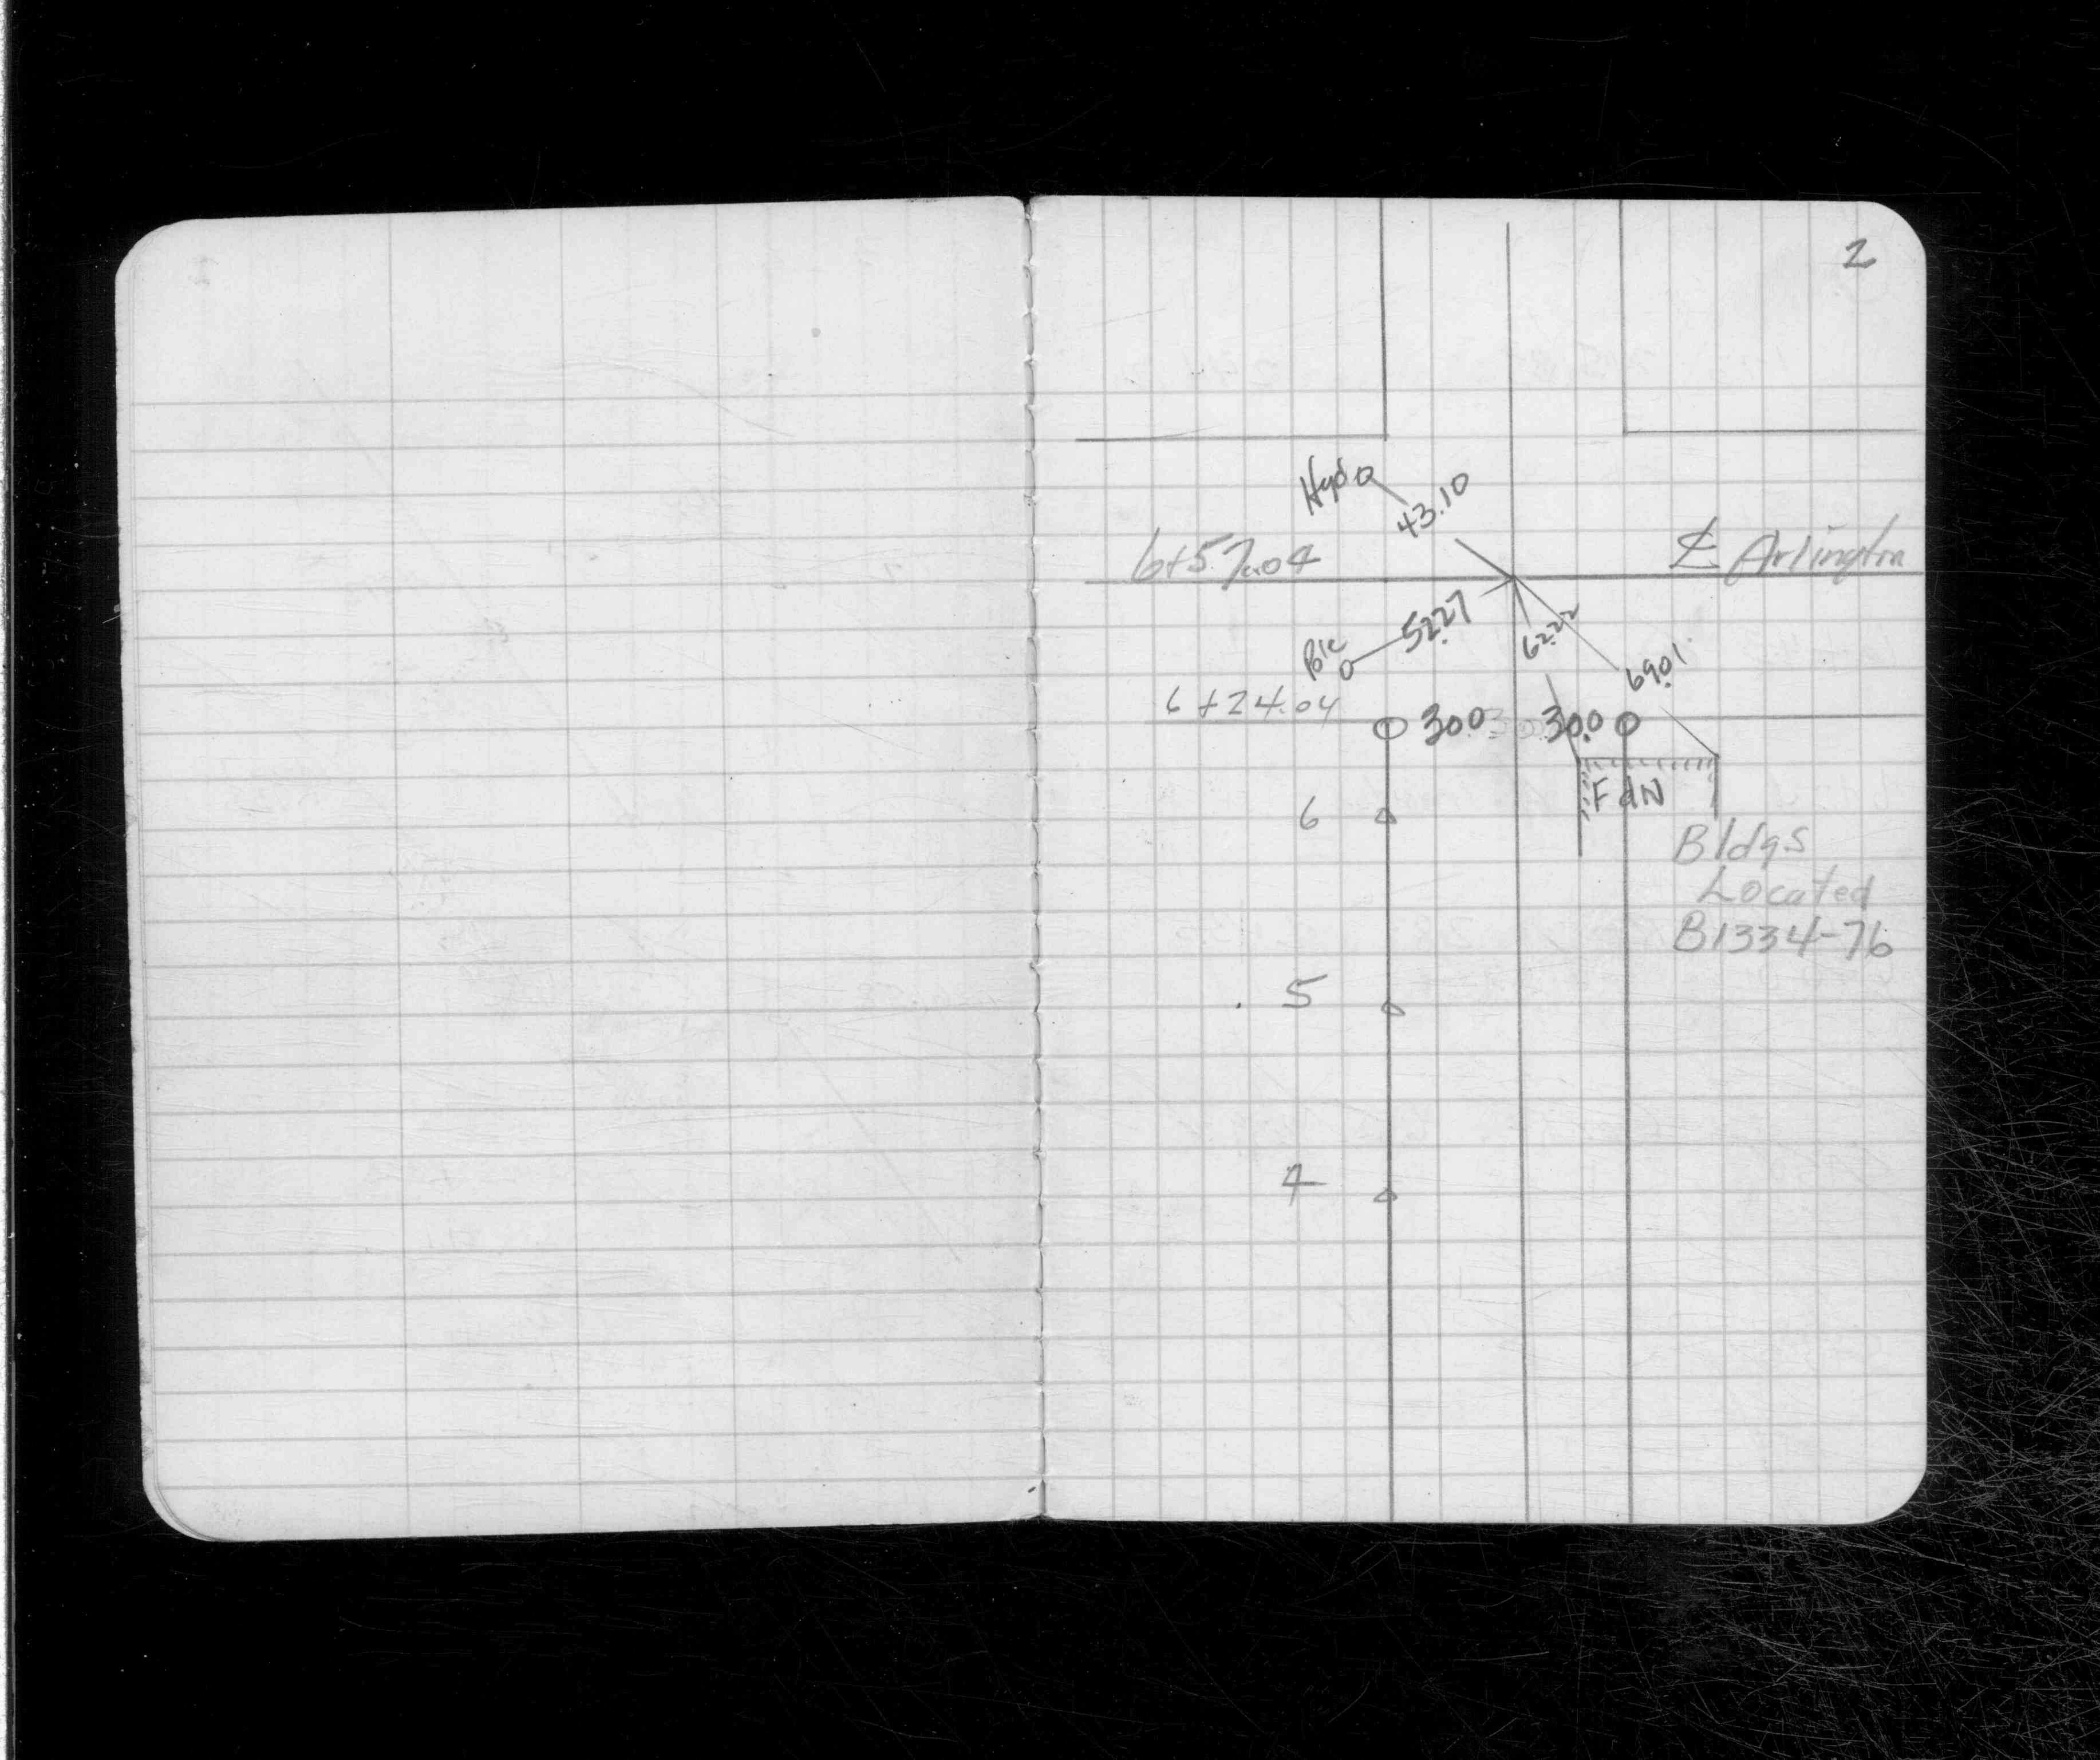 2
Hyd
43.10
6+57.04
℄ Arlington
52.27
62.22
Pole
69.01
6+24.04
30.0 30.0
FdN
6
Bldgs
Located
B1334-76
5
4